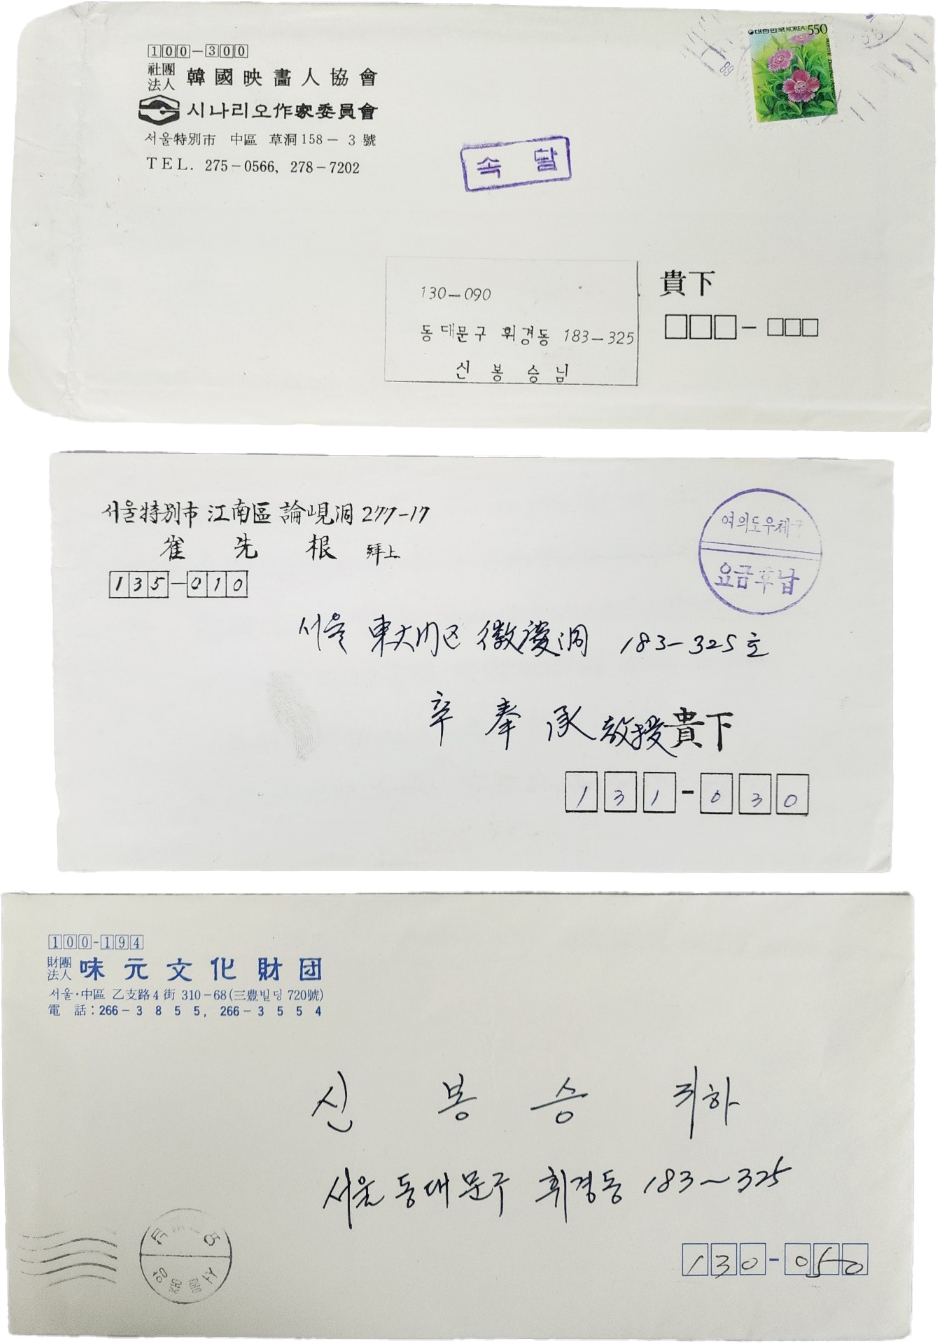 100-300
社團
法人 韓國映畫人協會
시나리오作家委員會
서울特別市 中區 草洞 158 - 3 號
TEL. 275-0566, 278-7202
대한민국 KOREA 550
속달
130-090
동대문구 휘경동 183-325
신봉승님
貴下
서울特別市 江南區 論峴洞 277-17
崔先根 拜上
135-010
여의도우체구
요금후납
서울 東大門区 徽慶洞 183-325호
辛奉承 敎授 貴下
131-030
100-194
財團
法人 味元文化財団
서울·中區 乙支路 4 街 310-68(三豊빌딩 720號)
電 話 : 266-3855, 266-3554
신봉승 귀하
서울 동대문구 휘경동 183~325
서울중앙
130-050